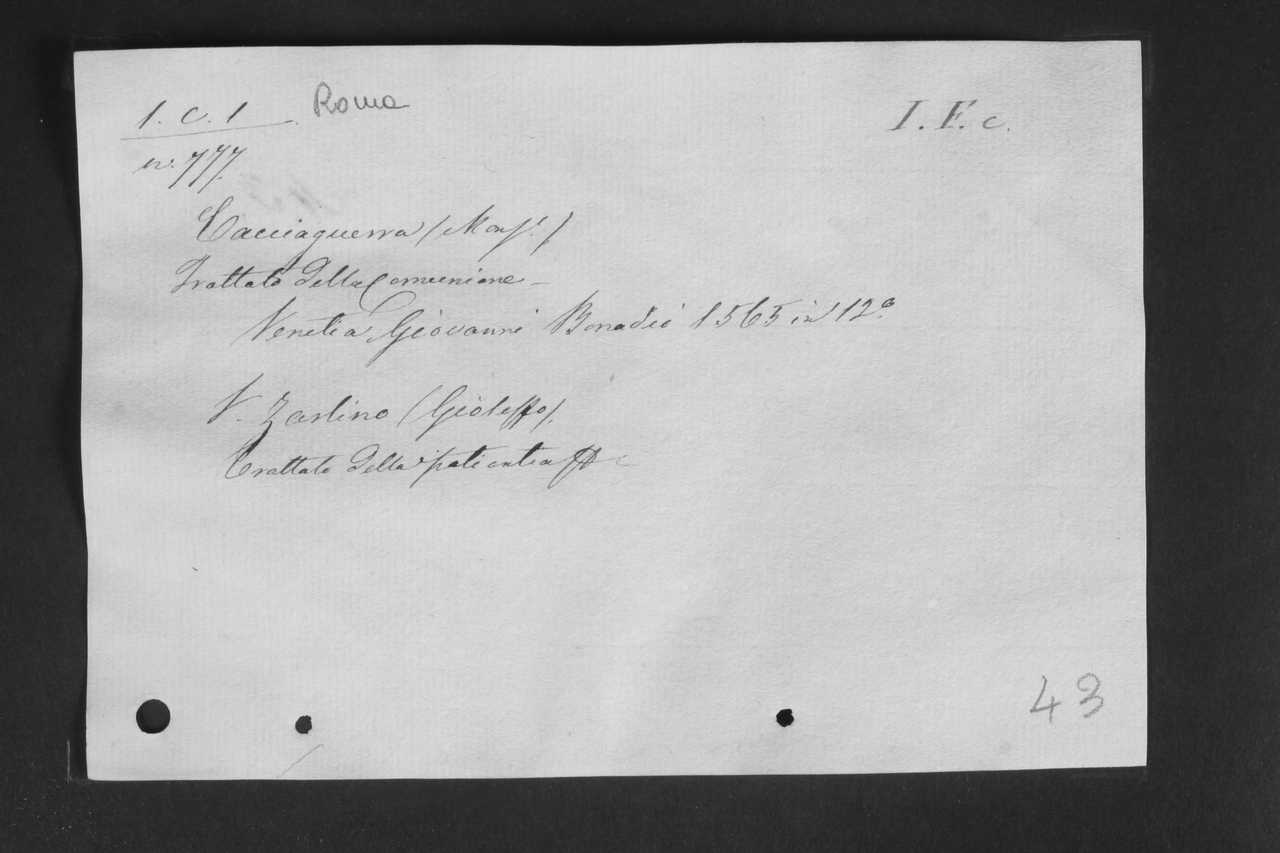 1. C. 1 Roma I. F. c.
n. 777.
Cacciaguerra (Mons.r)
Trattato della Comunione -
Venetia Giovanni Bonadio 1565 in 12º
V. Zarlino (Gioseffo).
Trattato della patientia
43